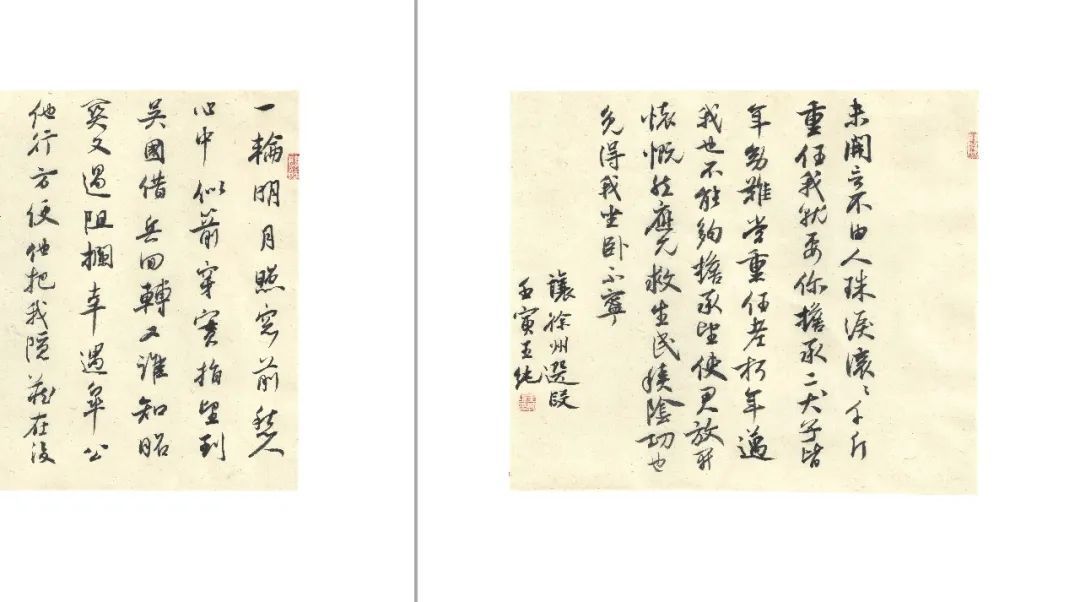 一輪明月照窓前愁人
心中似箭穿實指望到
吳國借兵回轉又誰知昭
関又遇阻攔幸遇皋公
他行方便他把我隱藏在後
未開言不由人珠淚滾〻千斤
重任我就要你擔承二犬子皆
年幼難當重任老朽年邁
我也不能夠擔承望使君放開
懷慨然應允救生民積陰功也
免得我坐卧不寧
讓徐州選段
壬寅王純